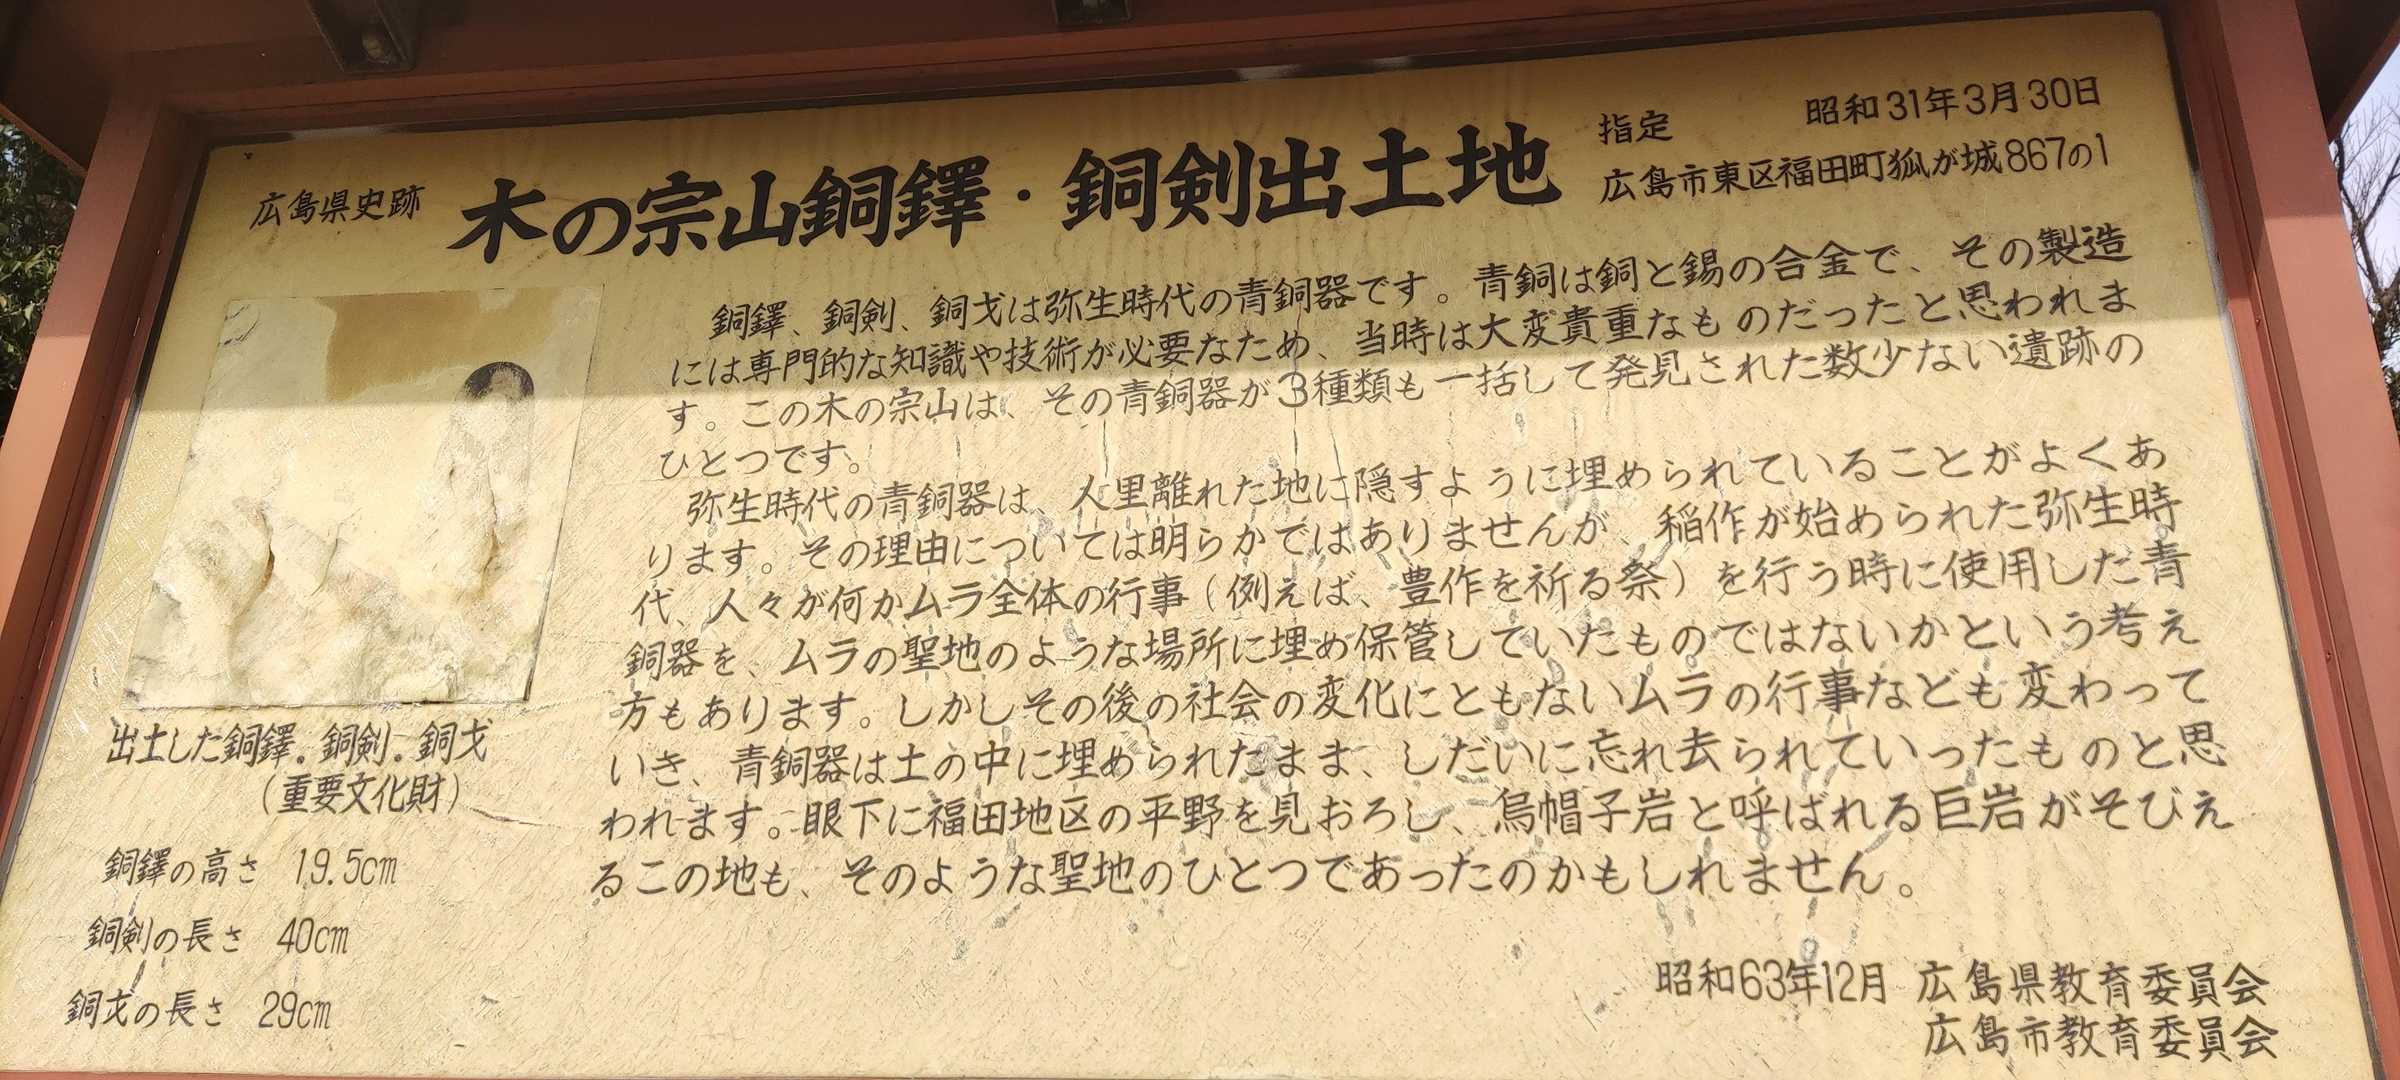 広島県史跡
木の宗山銅鐸・銅剣出土地
指定 昭和31年3月30日
広島市東区福田町狐が城867の1
銅鐸、銅剣、銅戈は弥生時代の青銅器です。青銅は銅と錫の合金で、その製造
には専門的な知識や技術が必要なため、当時は大変貴重なものだったと思われま
す。この木の宗山は、その青銅器が3種類も一括して発見された数少ない遺跡の
ひとつです。
弥生時代の青銅器は、人里離れた地に隠すように埋められていることがよくあ
ります。その理由については明らかではありませんが、稲作が始められた弥生時
代、人々が何かムラ全体の行事（例えば、豊作を祈る祭）を行う時に使用した青
銅器を、ムラの聖地のような場所に埋め保管していたものではないかという考え
方もあります。しかしその後の社会の変化にともないムラの行事なども変わって
いき、青銅器は土の中に埋められたまま、しだいに忘れ去られていったものと思
われます。眼下に福田地区の平野を見おろし、烏帽子岩と呼ばれる巨岩がそびえ
るこの地も、そのような聖地のひとつであったのかもしれません。
出土した銅鐸.銅剣.銅戈
（重要文化財）
銅鐸の高さ 19.5cm
銅剣の長さ 40cm
銅戈の長さ 29cm
昭和63年12月 広島県教育委員会
広島市教育委員会